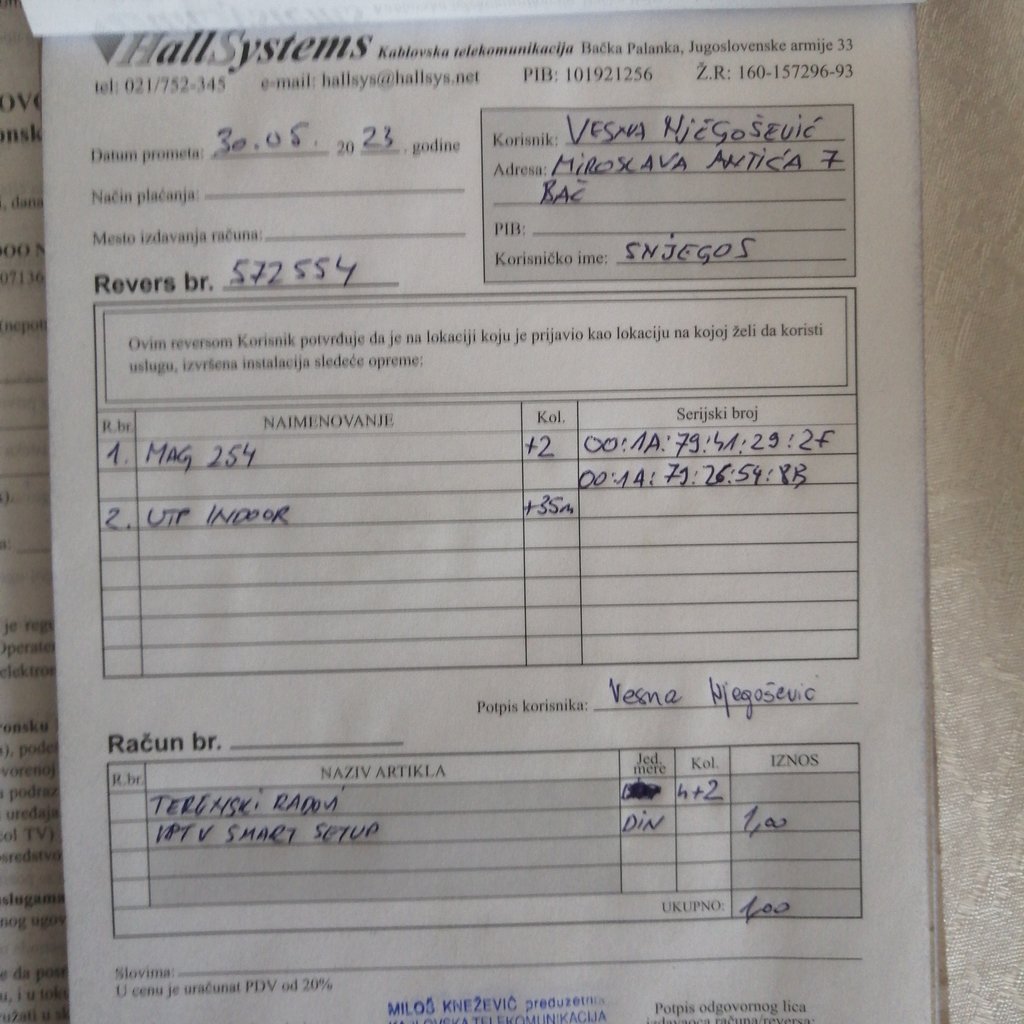 HallSystems Kablovska telekomunikacija Bačka Palanka, Jugoslovenske armije 33
tel: 021/752-345 e-mail: hallsys@hallsys.net PIB: 101921256 Ž.R: 160-157296-93
Datum prometa: 30.05. 20 23. godine
Način plaćanja:
Mesto izdavanja računa:
Revers br. 572554
Korisnik: VESNA NJEGOŠEVIĆ
Adresa: MIROSLAVA ANTIĆA 7
BAČ
PIB:
Korisničko ime: SNJEGOS
Ovim reversom Korisnik potvrđuje da je na lokaciji koju je prijavio kao lokaciju na kojoj želi da koristi
uslugu, izvršena instalacija sledeće opreme:
R.br. NAIMENOVANJE Kol. Serijski broj
1. MAG 254 +2 00:1A:79:41:29:2F
00:1A:79:26:54:8B
2. UTP INDOOR +35m
Potpis korisnika: Vesna Njegošević
Račun br.
R.br. NAZIV ARTIKLA Jed. mere Kol. IZNOS
TERENSKI RADOVI 4+2
IPTV SMART SETUP DIN 1,00
UKUPNO: 1,00
Slovima:
U cenu je uračunat PDV od 20%
MILOŠ KNEŽEVIĆ preduzetnik
KABLOVSKA TELEKOMUNIKACIJA
Potpis odgovornog lica
izdavaoca računa/reversa: